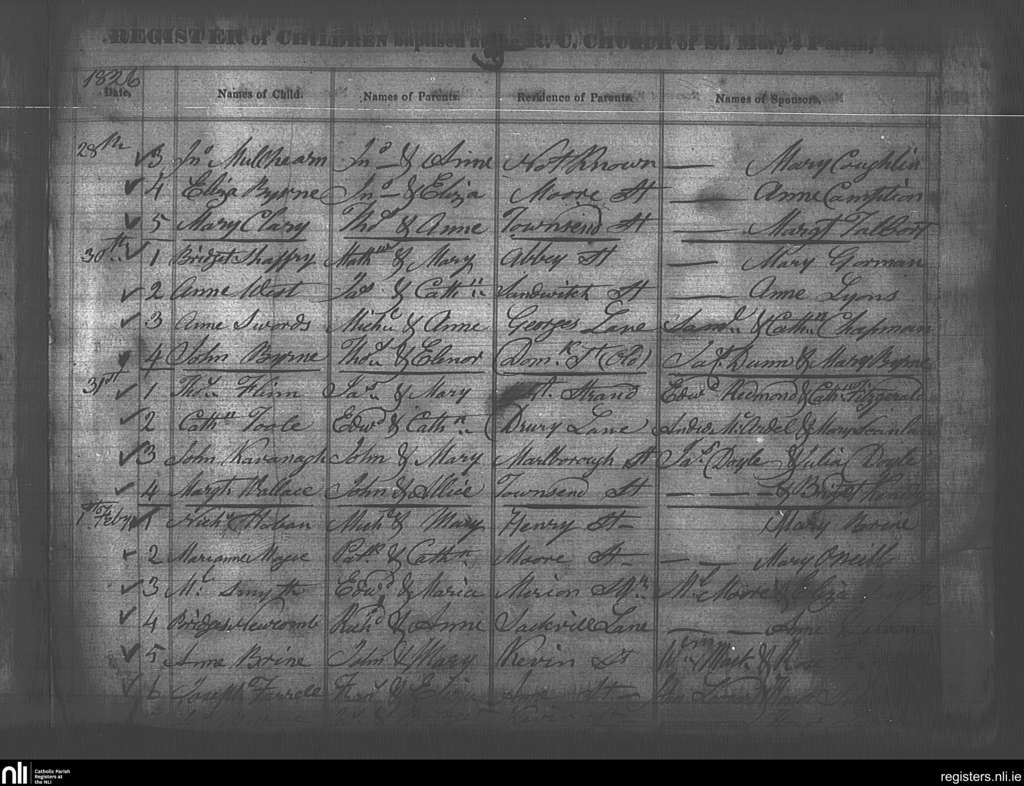 REGISTER of CHILDREN baptised at the R. C. CHURCH of St. Mary's Parish,
1826
Date, Names of Child. Names of Parents. Residence of Parents. Names of Sponsors.
28th 3 Jno Mullhearn Jno & Anne Not Known — Mary Coughlin
4 Eliza Byrne Jno & Eliza Moore St — Anne Campion
5 Mary Clary Thos & Anne Townsend St — Margt Talbot
30th 1 Bridget Shaffry Mathew & Mary Abbey St — Mary Gorman
2 Anne West Jas & Cathn Sandwitch St — Anne Lyons
3 Anne Swords Michl & Anne Georges Lane Saml & Cathn Chapman
4 John Byrne Thos & Elenor Domk St (Old) Jas Dunn & Mary Byrne
31st 1 Thos Flinn Jas & Mary Strand Edwd Redmond & Cathn Fitzgerald
2 Cathn Toole Edwd & Cathn Drury Lane Andw McArdel & Mary Scanlan
3 John Kavanagh John & Mary Marlborough St Jas Doyle & Julia Doyle
4 Maryt Wallace John & Allice Townsend St — — & Bridget
1st Feby 1 Nichs Hoban Michl & Mary Henry St Mary Brine
2 Marianne Magee Patk & Cathn Moore St — — Mary O'neill
3 Mc Smyth Edwd & Maria Merion Sqr Moore & Eliza
4 Bridget Newcomb Richd & Anne Sackville Lane — — Anne
5 Anne Brine John & Mary Kevin St Wm Mack & Rose
6 Joseph Farrell & Eliza St
nli Catholic Parish
Registers at
the NLI
registers.nli.ie